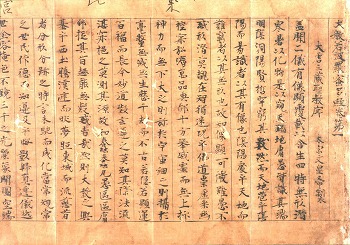 大般若波羅蜜多經卷第一
大唐三藏聖教序 太宗文皇帝製
蓋聞二儀有像顯覆載以含生四時無形潛
寒暑以化物是以窺天鑑地庸愚皆識其端
明陰洞陽賢哲罕窮其數然而天地苞乎陰
陽而易識者以其有像也陰陽處乎天地而
難窮者以其無形也故知像顯可徵雖愚不
惑形潛莫覩在智猶迷況乎佛道崇虛乘幽
控寂弘濟萬品典御十方舉威靈而無上抑
神力而無下大之則彌於宇宙細之則攝於
毫釐無滅無生歷千劫而不古若隱若顯運
百福而長今妙道凝玄遵之莫知其際法流
湛寂挹之莫測其源故知蠢蠢凡愚區區庸
鄙投其旨趣能無疑惑者哉然則大教之興
基乎西土騰漢庭而皎夢照東域而流慈昔
者分形分跡之時言未馳而成化當常現常
之世民仰德而知遵及乎晦影歸真遷儀越
世金容掩色不鏡三千之光麗象開圖空端